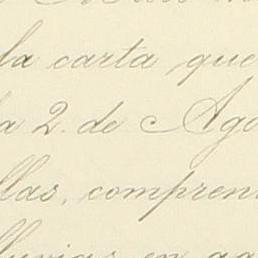 la carta que
a 2. de Ago
llas, compren
lluvias en